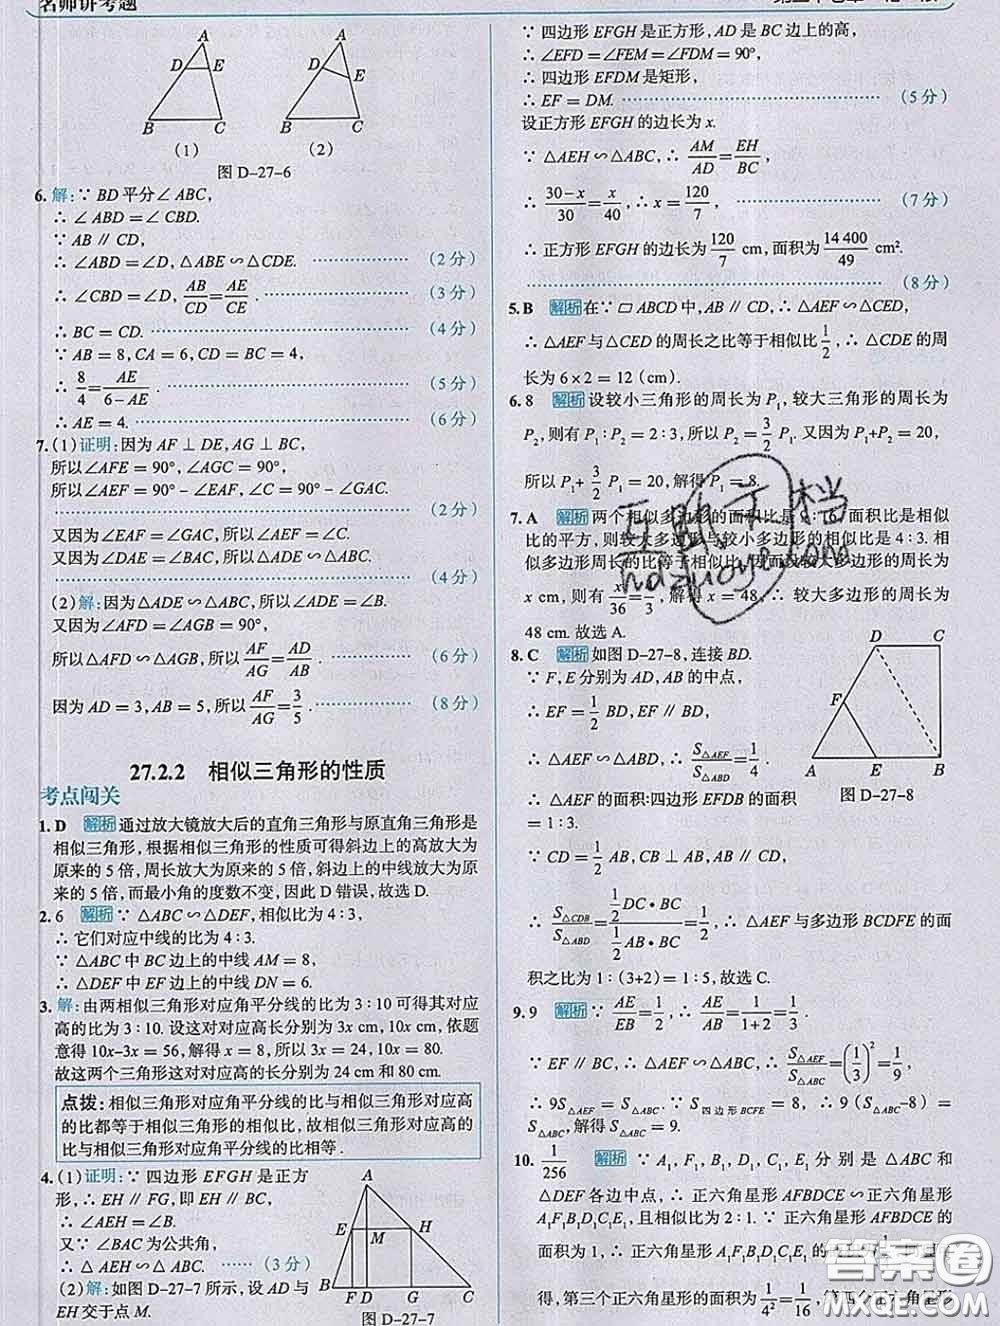 名师讲考题
A
D
E
B
C
(1)
A
D
E
B
C
(2)
图 D-27-6
6. 解:∵ BD 平分∠ ABC,
∴ ∠ ABD = ∠ CBD.
∵ AB // CD,
∴ ∠ABD = ∠D, △ABE ∽ △CDE. (2 分)
∴ ∠CBD = ∠D, AB/CD = AE/CE. (3 分)
∴ BC = CD. (4 分)
∵ AB = 8, CA = 6, CD = BC = 4,
∴ 8/4 = AE/(6-AE). (5 分)
∴ AE = 4. (6 分)
7. (1) 证明:因为 AF ⊥ DE, AG ⊥ BC,
所以 ∠AFE = 90°, ∠AGC = 90°,
所以 ∠AEF = 90° - ∠EAF, ∠C = 90° - ∠GAC.
(2 分)
又因为 ∠EAF = ∠GAC, 所以 ∠AEF = ∠C.
又因为 ∠DAE = ∠BAC, 所以 △ADE ∽ △ABC.
(4 分)
(2) 解:因为 △ADE ∽ △ABC, 所以 ∠ADE = ∠B.
又因为 ∠AFD = ∠AGB = 90°,
所以 △AFD ∽ △AGB, 所以 AF/AG = AD/AB. (6 分)
因为 AD = 3, AB = 5, 所以 AF/AG = 3/5. (8 分)
27.2.2 相似三角形的性质
考点闯关
1. D 解析 通过放大镜放大后的直角三角形与原直角三角形是
相似三角形, 根据相似三角形的性质可得斜边上的高放大为
原来的 5 倍, 周长放大为原来的 5 倍, 斜边上的中线放大为原
来的 5 倍, 而最小角的度数不变, 因此 D 错误, 故选 D.
2. 6 解析 ∵ △ABC ∽ △DEF, 相似比为 4∶3,
∴ 它们对应中线的比为 4∶3.
∵ △ABC 中 BC 边上的中线 AM = 8,
∴ △DEF 中 EF 边上的中线 DN = 6.
3. 解:由两相似三角形对应角平分线的比为 3∶10 可得其对应
高的比为 3∶10. 设这对对应高长分别为 3x cm, 10x cm, 依题
意得 10x-3x = 56, 解得 x = 8, 所以 3x = 24, 10x = 80.
故这两个三角形这对对应高的长分别为 24 cm 和 80 cm.
点拨:相似三角形对应角平分线的比与相似三角形对应高
的比都等于相似三角形的相似比, 故相似三角形对应高的
比与相似三角形对应角平分线的比相等.
4. (1) 证明:∵ 四边形 EFGH 是正方
形, ∴ EH // FG, 即 EH // BC,
∴ ∠AEH = ∠B.
又∵ ∠BAC 为公共角,
∴ △ AEH ∽ △ABC. (3 分)
(2) 解:如图 D-27-7 所示, 设 AD 与
EH 交于点 M.
A
E
M
H
B
F
D
G
C
图 D-27-7
∵ 四边形 EFGH 是正方形, AD 是 BC 边上的高,
∴ ∠EFD = ∠FEM = ∠FDM = 90°,
∴ 四边形 EFDM 是矩形,
∴ EF = DM. (5 分)
设正方形 EFGH 的边长为 x.
∵ △AEH ∽ △ABC, ∴ AM/AD = EH/BC,
∴ (30-x)/30 = x/40, ∴ x = 120/7, (7 分)
∴ 正方形 EFGH 的边长为 120/7 cm, 面积为 14 400/49 cm².
(8 分)
5. B 解析 在∵ ▱ ABCD 中, AB // CD, ∴ △AEF ∽ △CED,
∴ △AEF 与 △CED 的周长之比等于相似比 1/2, ∴ △CDE 的周
长为 6×2 = 12 (cm).
6. 8 解析 设较小三角形的周长为 P₁, 较大三角形的周长为
P₂, 则有 P₁∶P₂ = 2∶3, 所以 P₂ = 3/2 P₁. 又因为 P₁+P₂ = 20,
所以 P₁+ 3/2 P₁ = 20, 解得 P₁ = 8.
7. A 解析 两个相似多边形的面积比是 9∶16, 面积比是相似
比的平方, 则较大多边形与较小多边形的相似比是 4∶3. 相
似多边形周长的比等于相似比, 因而设较大多边形的周长为
x cm, 则有 x/36 = 4/3, 解得 x = 48, ∴ 较大多边形的周长为
48 cm. 故选 A.
8. C 解析 如图 D-27-8, 连接 BD.
∵ F, E 分别为 AD, AB 的中点,
∴ EF = 1/2 BD, EF // BD,
∴ △AEF ∽ △ABD, ∴ S△AEF/S△ABD = 1/4,
∴ △AEF 的面积∶四边形 EFDB 的面积
= 1∶3.
D
C
F
A
E
B
图 D-27-8
∵ CD = 1/2 AB, CB ⊥ AB, CB ⊥ DC,
∴ S△CDB/S△ABD = (1/2 DC·BC)/(1/2 AB·BC) = 1/2, ∴ △AEF 与多边形 BCDFE 的面
积之比为 1∶(3+2) = 1∶5, 故选 C.
9. 9 解析 ∵ AE/EB = 1/2, ∴ AE/AB = 1/(1+2) = 1/3.
∵ EF // BC, ∴ △AEF ∽ △ABC, ∴ S△AEF/S△ABC = (1/3)² = 1/9,
∴ 9S△AEF = S△ABC. ∵ S四边形BCFE = 8, ∴ 9(S△ABC-8) =
S△ABC, 解得 S△ABC = 9.
10. 1/256 解析 ∵ A₁, F₁, B₁, D₁, C₁, E₁ 分别是 △ABC 和
△DEF 各边中点, ∴ 正六角星形 AFBDCE ∽ 正六角星形
A₁F₁B₁D₁C₁E₁, 且相似比为 2∶1. ∵ 正六角星形 AFBDCE 的
面积为 1, ∴ 正六角星形 A₁F₁B₁D₁C₁E₁ 的
得, 第三个正六角星形的面积为 1/4² = 1/16, 第四个六角星形
互助文档
hdzuoye.com
答案圈
MXQE.COM